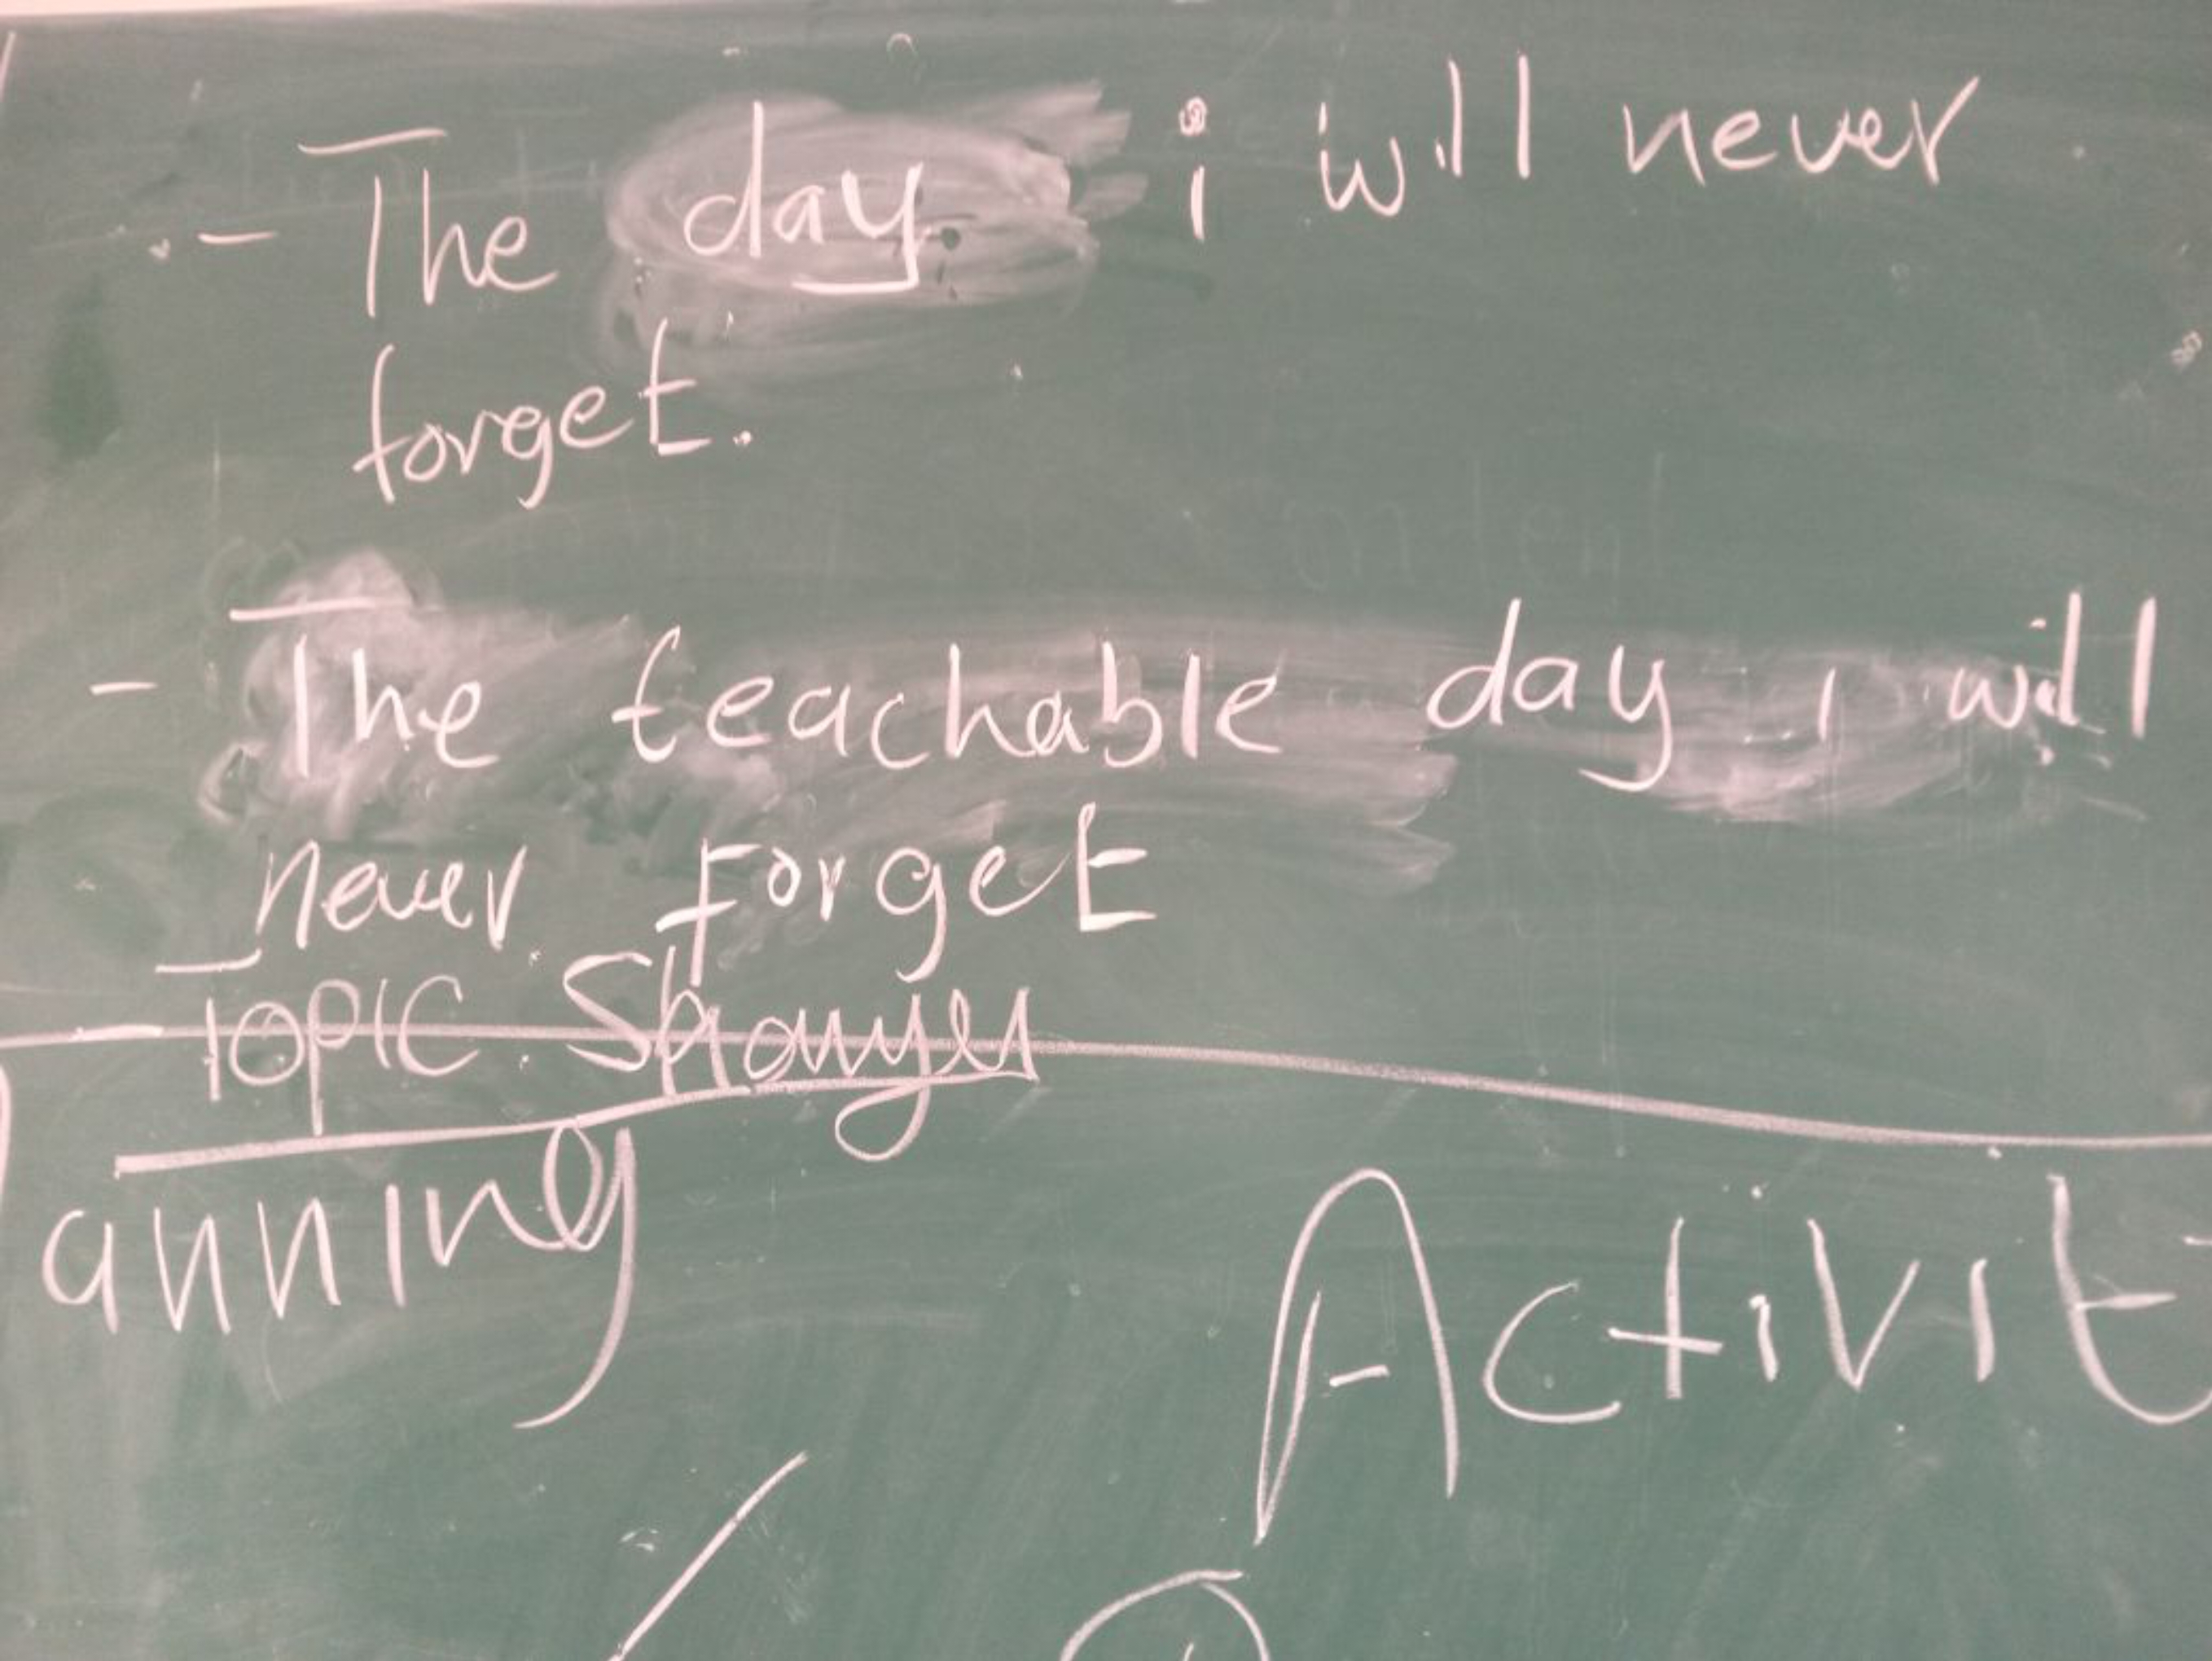 - The day i will never
forget.
- The teachable day i will
never forget
- TOPIC
anning
Activit